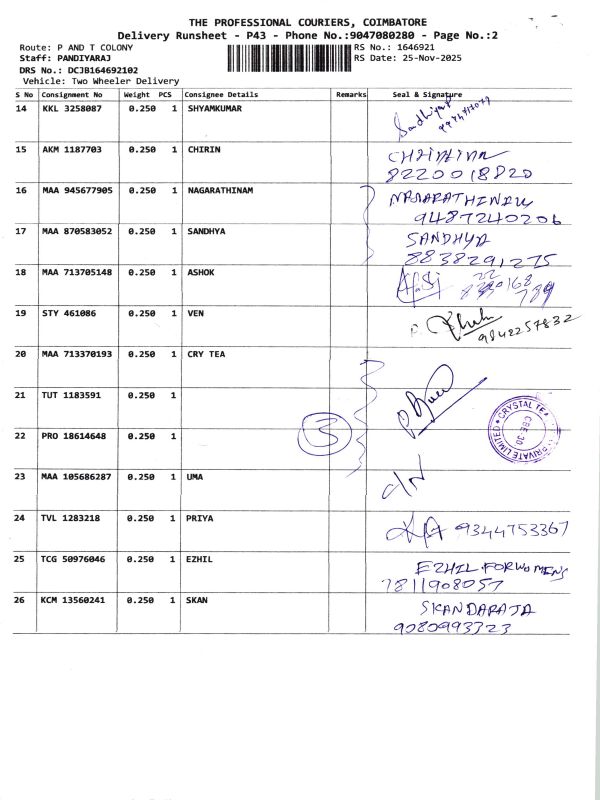 THE PROFESSIONAL COURIERS, COIMBATORE
Delivery Runsheet - P43 - Phone No.:9047080280 - Page No.:2
Route: P AND T COLONY RS No.: 1646921
Staff: PANDIYARAJ RS Date: 25-Nov-2025
DRS No.: DCJB164692102
Vehicle: Two Wheeler Delivery
S No Consignment No Weight PCS Consignee Details Remarks Seal & Signature
14 KKL 3258087 0.250 1 SHYAMKUMAR
15 AKM 1187703 0.250 1 CHIRIN
8220018820
16 MAA 945677905 0.250 1 NAGARATHINAM
9487240206
17 MAA 870583052 0.250 1 SANDHYA SANDHYA
8838291275
18 MAA 713705148 0.250 1 ASHOK
19 STY 461086 0.250 1 VEN
9842257832
20 MAA 713370193 0.250 1 CRY TEA
21 TUT 1183591 0.250 1
CRYSTAL TEA PRIVATE LIMITED
CBE-30
22 PRO 18614648 0.250 1 3
23 MAA 105686287 0.250 1 UMA
24 TVL 1283218 0.250 1 PRIYA 9344753367
25 TCG 50976046 0.250 1 EZHIL EZHIL FORWOMENS
7811908057
26 KCM 13560241 0.250 1 SKAN SKANDARAJA
9080993323